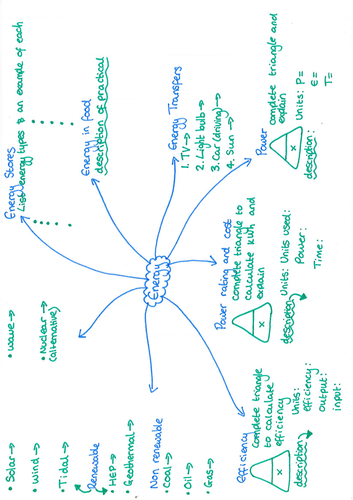 Energy Stores
List energy types & an example of each
Energy in food
description of practical
Energy Transfers
1. TV →
2. Light bulb →
3. Car (driving) →
4. Sun →
Power
complete triangle and
explain
x
Units: P=
E=
T=
description:
Energy
Power rating and cost
complete triangle to
calculate kWh and
explain
x
Units: Units used:
Power:
Time:
description
Efficiency
complete triangle
to calculate
efficiency
x
Units:
efficiency:
output:
input:
description
Non renewable
• Coal →
• Oil →
• Gas →
Renewable
• Solar →
• Wind →
• Tidal →
• HEP →
• Geothermal →
• Wave →
• Nuclear →
(alternative)